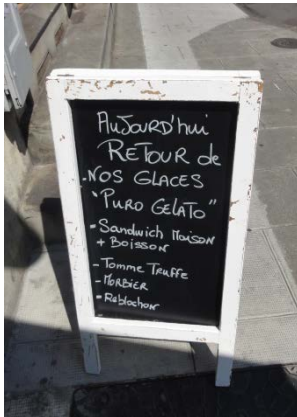 AUJOURD'hui
RETOUR de
NOS GLACES
"PURO GELATO"
- Sandwich Maison
+ BOISSON
- Tomme Truffe
- MORBIER
- Reblochon